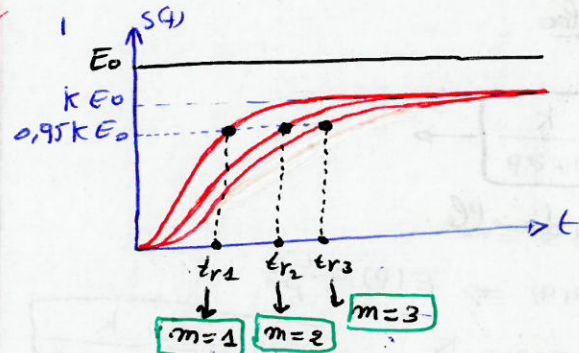 S(t)
E₀
K E₀
0,95 K E₀
t
tr1 tr2 tr3
m=1 m=2 m=3
K